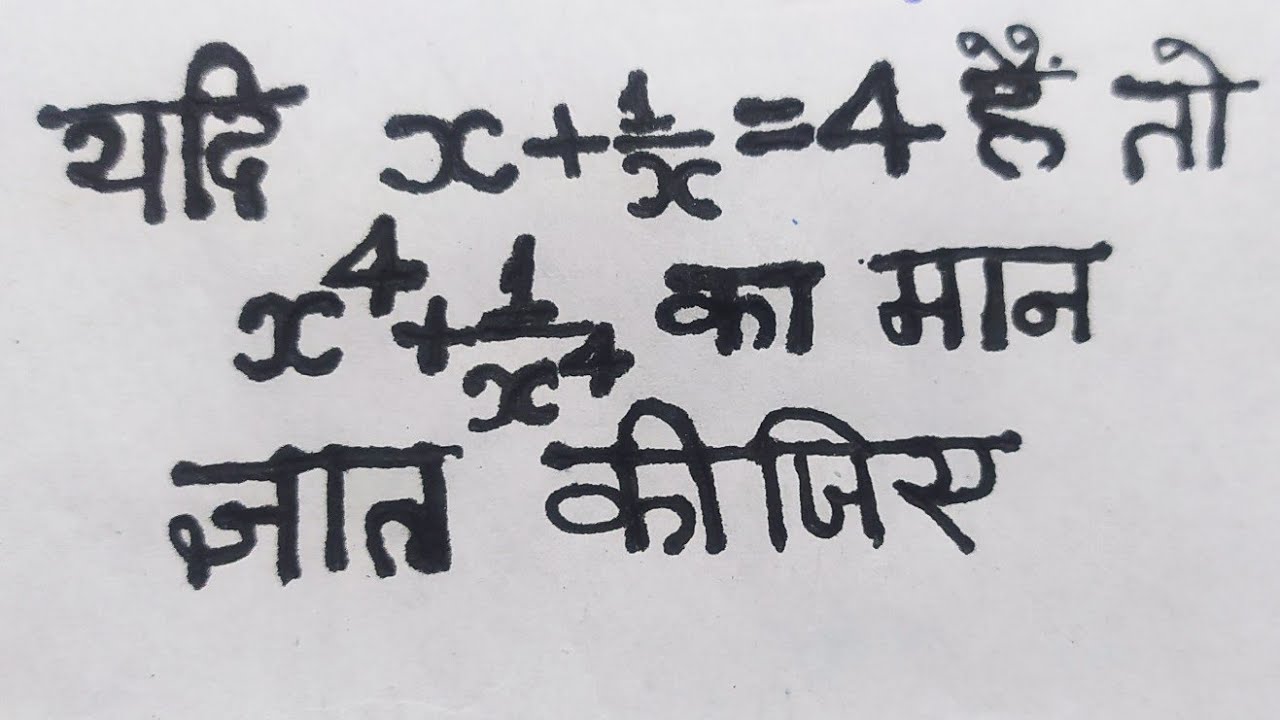 यदि x + 1/x = 4 हैं तो
x⁴ + 1/x⁴ का मान
ज्ञात कीजिए